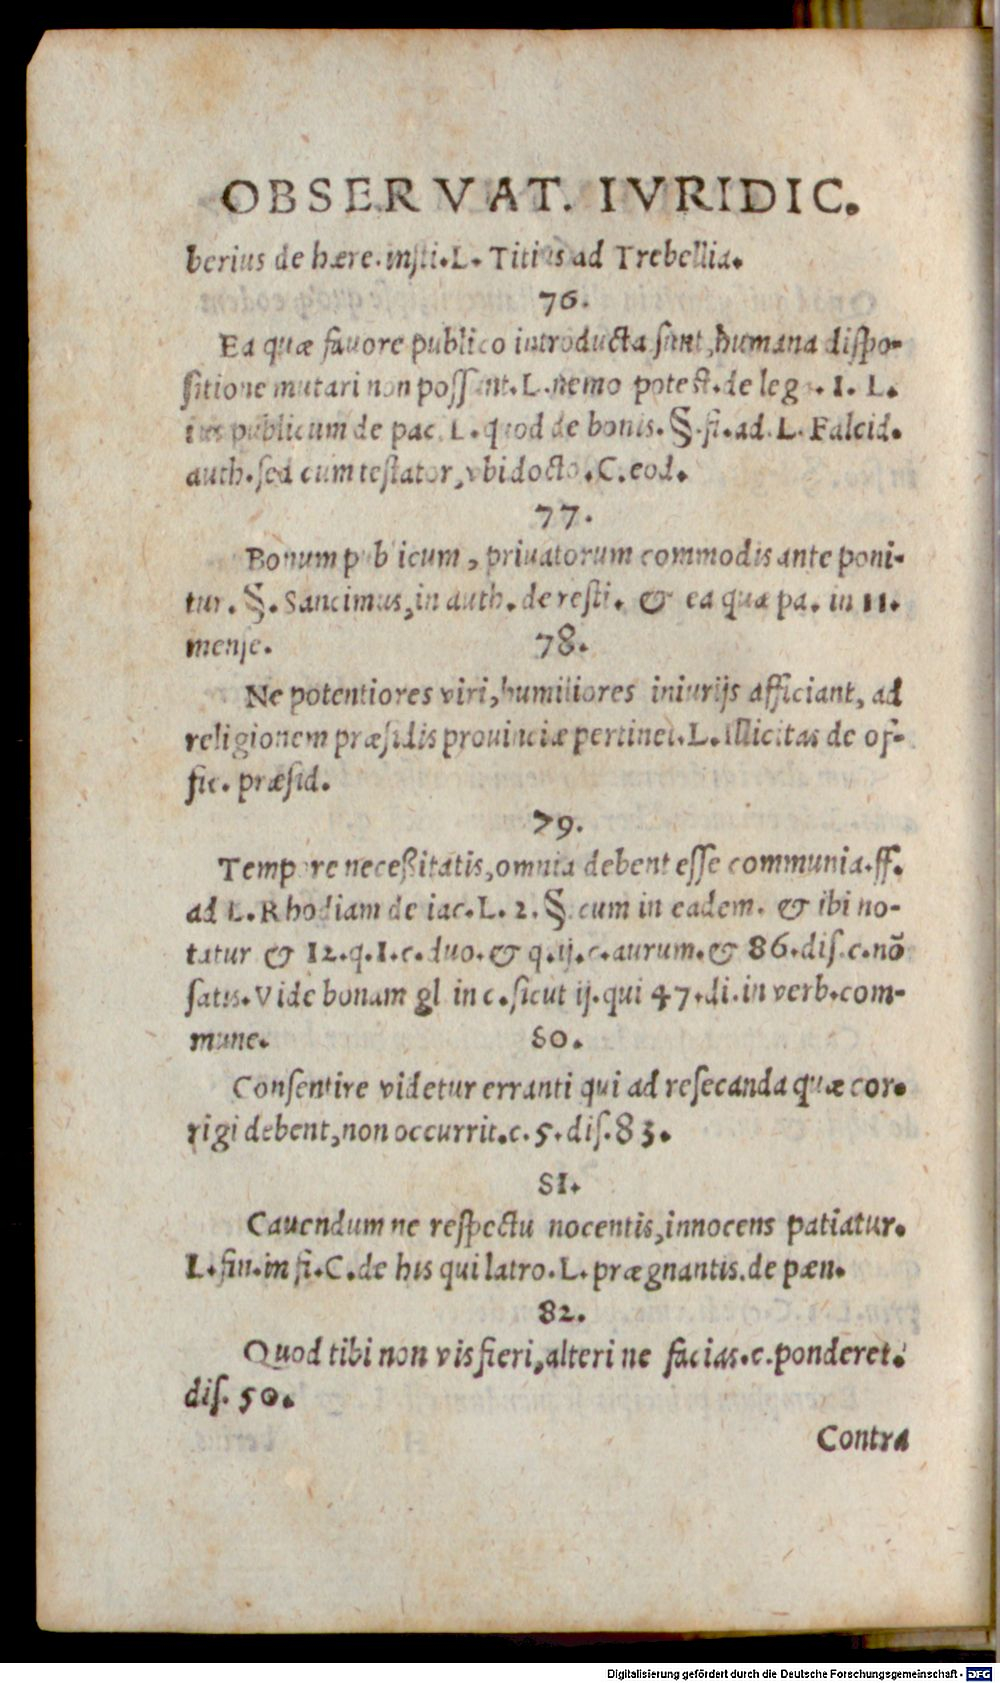 OBSERVAT. IVRIDIC.
berius de hære. insti. L. Titius ad Trebellia.
76.
Ea quæ fauore publico introducta sunt, humana dispo-
sitione mutari non possunt. L. nemo potest. de leg. 1. L.
ius publicum de pac. L. quod de bonis. §. fi. ad. L. Falcid.
auth. sed cum testator, vbi docto. C. eod.
77.
Bonum publicum, priuatorum commodis ante poni-
tur. §. Sancimus, in auth. de resti. & ea quæ pa. in 11.
mense.
78.
Ne potentiores viri, humiliores iniurijs afficiant, ad
religionem præsidis prouinciæ pertinet. L. Illicitas de of-
fic. præsid.
79.
Tempore neceßitatis, omnia debent esse communia. ff.
ad L. Rhodiam de iac. L. 2. §. cum in eadem. & ibi no-
tatur & 12. q. 1. c. duo. & q. ij. c. aurum. & 86. dis. c. nō
satis. Vide bonam gl in c. sicut ij. qui 47. di. in verb. com-
mune.
80.
Consentire videtur erranti qui ad resecanda quæ cor-
rigi debent, non occurrit. c. 5. dis. 83.
81.
Cauendum ne respectu nocentis, innocens patiatur.
L. fin. in fi. C. de his qui latro. L. prægnantis. de pæn.
82.
Quod tibi non vis fieri, alteri ne facias. c. ponderet.
dis. 50.
Contra
Digitalisierung gefördert durch die Deutsche Forschungsgemeinschaft - DFG